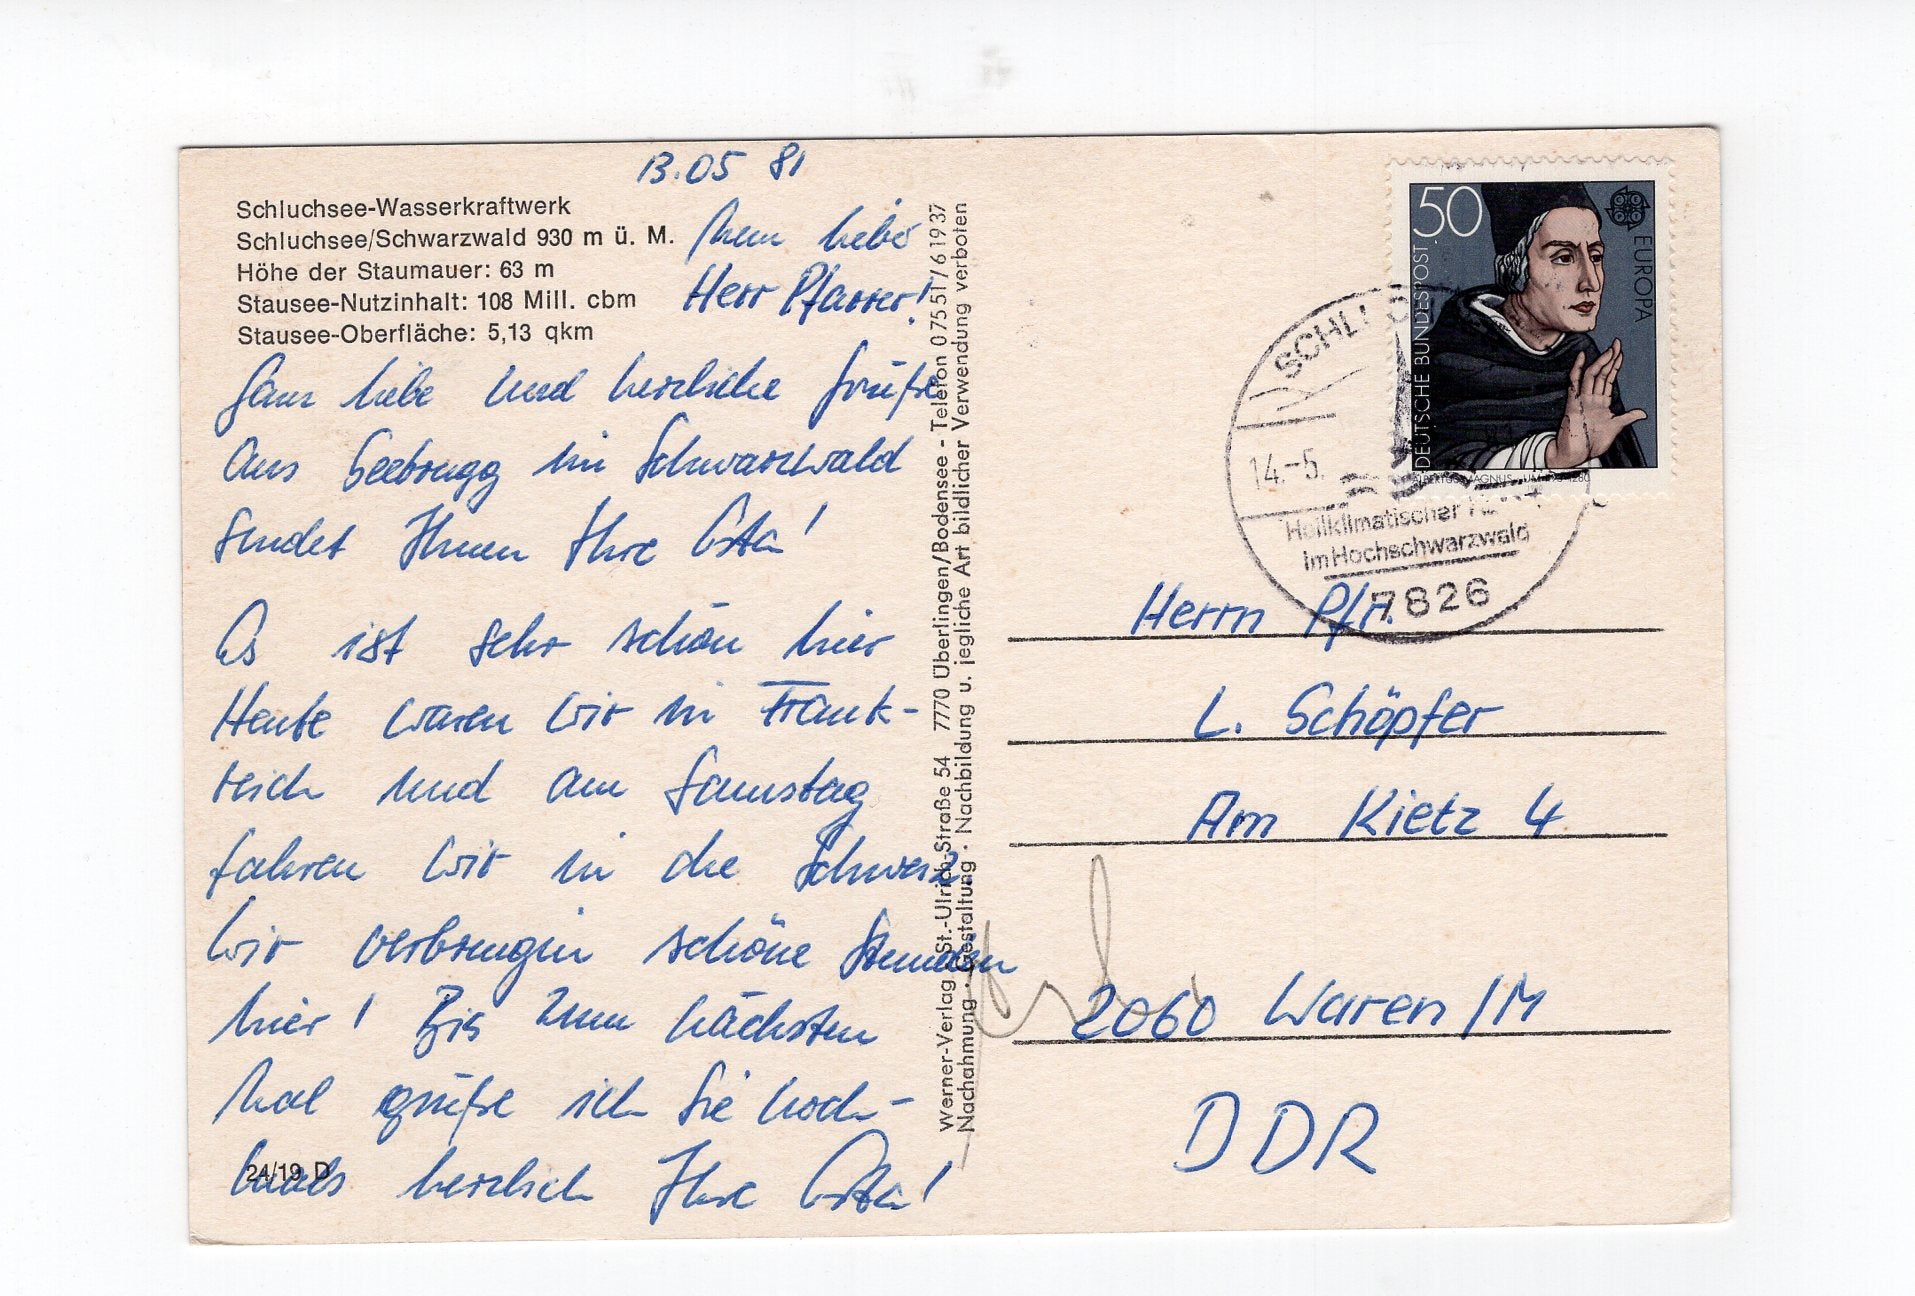 13.05 81
Schluchsee-Wasserkraftwerk
Schluchsee/Schwarzwald 930 m ü. M.
Höhe der Staumauer: 63 m
Stausee-Nutzinhalt: 108 Mill. cbm
Stausee-Oberfläche: 5,13 qkm
Mein lieber
Herr Pfarrer!
Ganz liebe und herzliche Grüße
aus Seebrugg im Schwarzwald
sendet Ihnen Ihre Asta!
Es ist sehr schön hier
Heute waren wir in Frank-
reich und am Samstag
fahren wir in die Schweiz.
Wir verbringen schöne Stunden
hier! Bis zum nächsten
Mal grüße ich Sie noch-
mals herzlich Ihre Asta!
24/19 D
Werner-Verlag, St.-Ulrich-Straße 54 7770 Überlingen/Bodensee - Telefon 07551/61937
Nachahmung · Gestaltung · Nachbildung u. jegliche Art bildlicher Verwendung verboten
50
EUROPA
DEUTSCHE BUNDESPOST
14.-5.
Heilklimatischer
im Hochschwarzwald
7826
Herrn Pfr.
L. Schöpfer
Am Kietz 4
2060 Waren/M
DDR